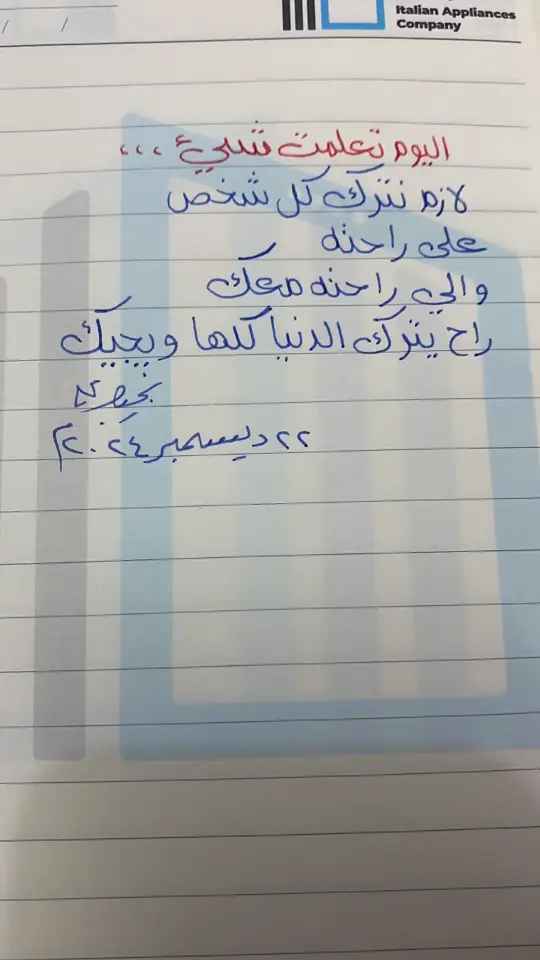 Italian Appliances
Company
/ /
اليوم تعلمت شيئ ،،،
لازم نترك كل شخص
على راحته
والي راحته معك
راح يترك الدنيا كلها ويجيك
٢٢ ديسمبر ٢٠٢٤م